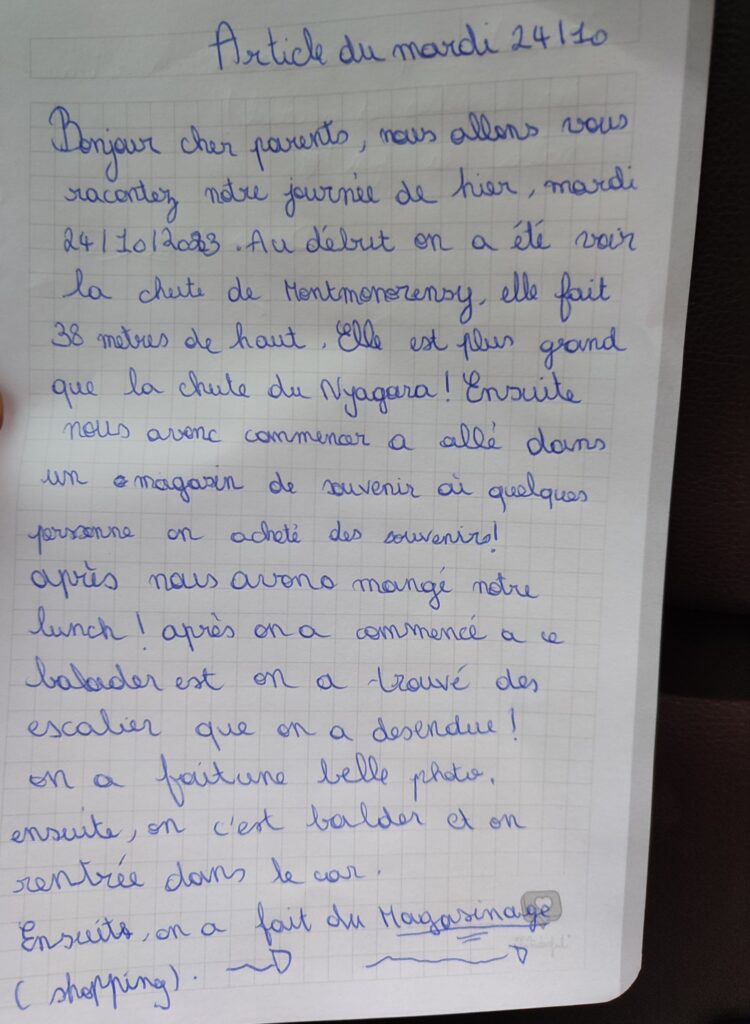 Article du mardi 24/10
Bonjour cher parents, nous allons vous
racontez notre journée de hier, mardi
24/10/2023. Au début on a été voir
la chute de Montmonorensy, elle fait
38 metres de haut. Elle est plus grand
que la chute du Nyagara! Ensuite
nous avonc commencer a allé dans
un magasin de souvenir où quelques
personne on acheté des souvenirs!
après nous avons mangé notre
lunch! après on a commencé a ce
balader est on a trouvé des
escalier que on a desendue!
on a fait une belle photo.
ensuite, on c'est balder et on
rentrée dans le car.
Ensuite, on a fait du Magasinage
(shopping).